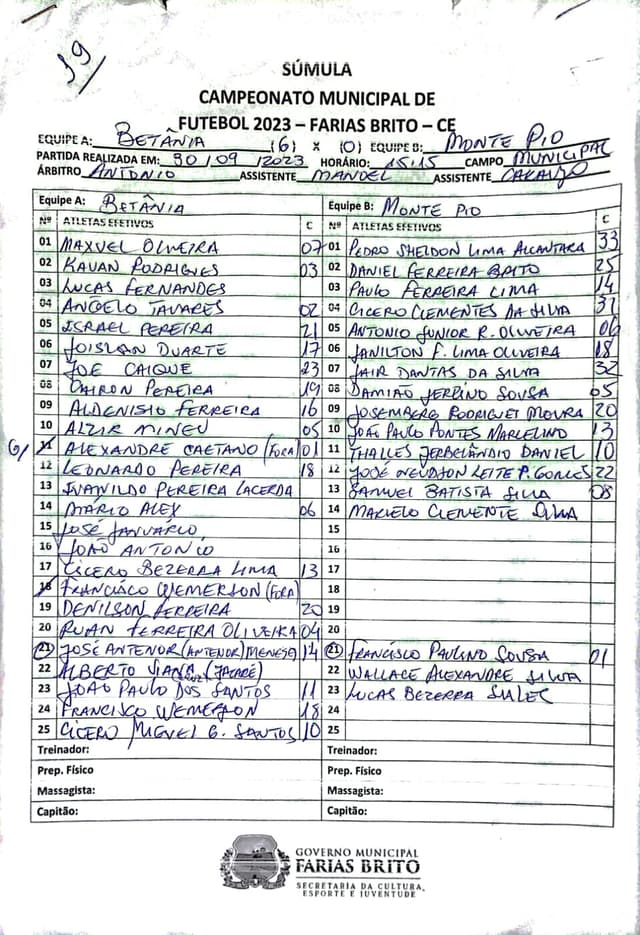 19
SÚMULA
CAMPEONATO MUNICIPAL DE
FUTEBOL 2023 – FARIAS BRITO – CE
EQUIPE A: BETÂNIA (6) X (0) EQUIPE B: MONTE PIO
PARTIDA REALIZADA EM: 30/09/2023 HORÁRIO: 15:15 CAMPO MUNICIPAL
ÁRBITRO ANTONIO ASSISTENTE MANOEL ASSISTENTE
Equipe A: BETÂNIA Equipe B: MONTE PIO
Nº ATLETAS EFETIVOS C Nº ATLETAS EFETIVOS C
01 MAXUEL OLIVEIRA 07 01 PEDRO SHELDON LIMA ALCANTARA 33
02 KAUAN RODRIGUES 03 02 DANIEL FERREIRA BRITO 25
03 LUCAS FERNANDES 03 PAULO FERREIRA LIMA 14
04 ANGELO TAVARES 02 04 CICERO CLEMENTES DA SILVA 31
05 ISRAEL PEREIRA 21 05 ANTONIO JUNIOR R. OLIVEIRA 06
06 JOISLAN DUARTE 17 06 JANILTON F. LIMA OLIVEIRA 18
07 JOE CAIQUE 23 07 JAIR DANTAS DA SILVA 32
08 DAIRON PEREIRA 19 08 DAMIÃO SOUSA 05
09 ALDENISIO FERREIRA 16 09 JOSEMBERG RODRIGUES MOURA 20
10 ALZIR MINEU 05 10 JOÃO PAULO PONTES MARCELINO 13
G/ 11 ALEXANDRE CAETANO (FORA) 01 11 THALLES DANIEL 10
12 LEONARDO PEREIRA 18 12 JOSÉ NEUDSON LEITE P. GOMES 22
13 IVANILDO PEREIRA LACERDA 13 SAMUEL BATISTA SILVA 08
14 MÁRIO ALEX 06 14 MARCELO CLEMENTE SILVA
15 JOSÉ JANUÁRIO 15
16 JOÃO ANTONIO 16
17 CICERO BEZERRA LIMA 13 17
18 FRANCISCO WEMERSON (FORA) 18
19 DENILSON FERREIRA 20 19
20 RUAN FERREIRA OLIVEIRA 04 20
21 JOSÉ ANTENOR (ANTENOR) MENESES 14 21 FRANCISCO PAULINO SOUSA 01
22 ALBERTO VIANA (JACARÉ) 22 WALLACE ALEXANDRE SILVA
23 JOÃO PAULO DOS SANTOS 11 23 LUCAS BEZERRA
24 FRANCISCO WEMERSON 18 24
25 CICERO MIGUEL G. SANTOS 10 25
Treinador: Treinador:
Prep. Físico Prep. Físico
Massagista: Massagista:
Capitão: Capitão:
GOVERNO MUNICIPAL
FARIAS BRITO
SECRETARIA DA CULTURA,
ESPORTE E JUVENTUDE